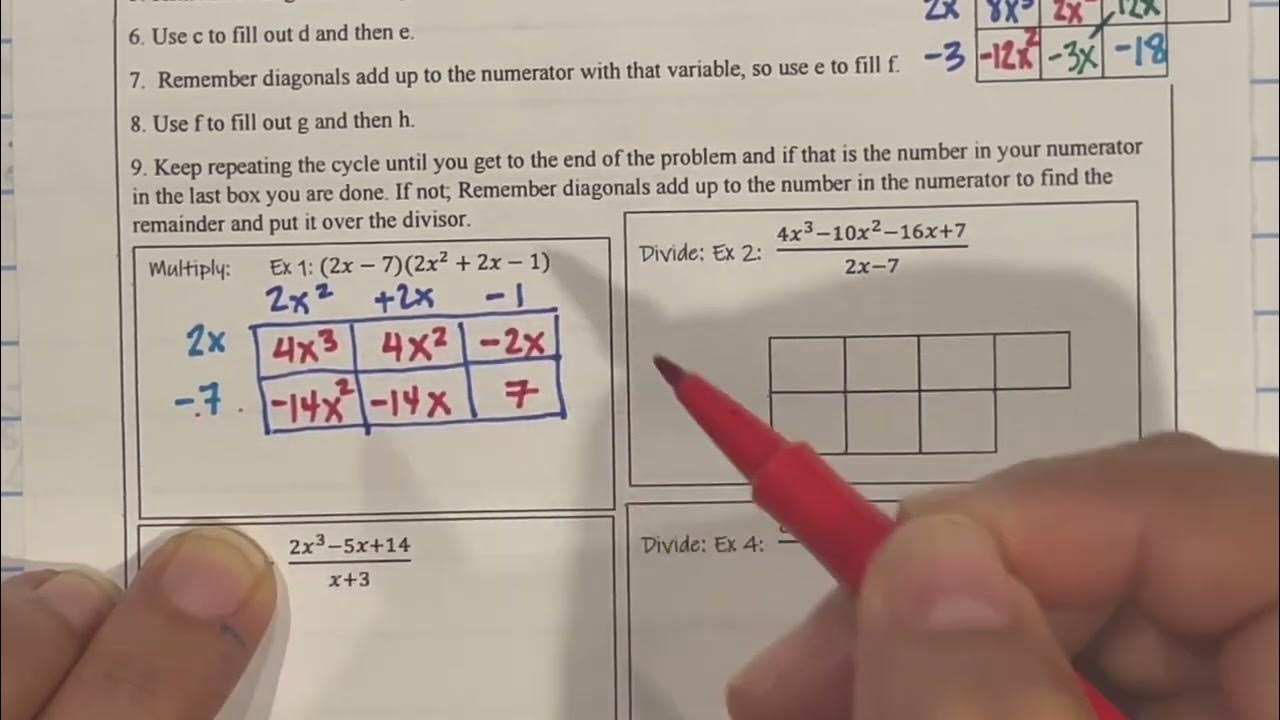 6. Use c to fill out d and then e.
7. Remember diagonals add up to the numerator with that variable, so use e to fill f.
8. Use f to fill out g and then h.
9. Keep repeating the cycle until you get to the end of the problem and if that is the number in your numerator
in the last box you are done. If not; Remember diagonals add up to the number in the numerator to find the
remainder and put it over the divisor.
2x 8x³ 2x 12x
-3 -12x² -3x -18
Multiply: Ex 1: (2x − 7)(2x² + 2x − 1)
2x² +2x -1
2x 4x³ 4x² -2x
-7 -14x² -14x 7
Divide: Ex 2: 4x³−10x²−16x+7
2x−7
2x³−5x+14
x+3
Divide: Ex 4: